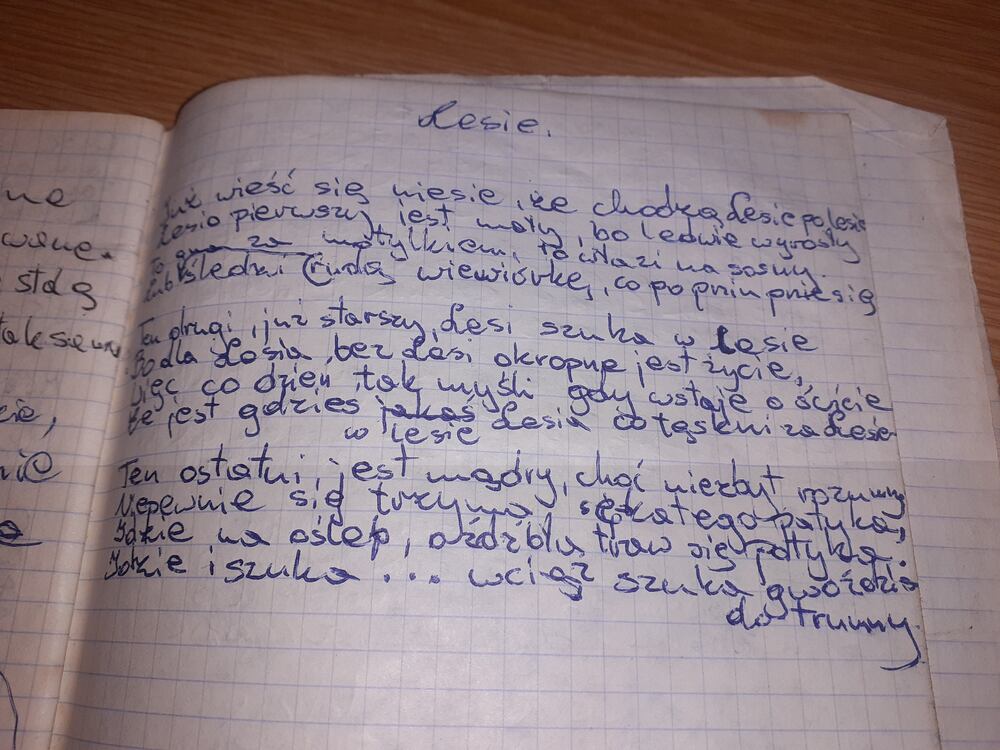 Lesie.
Już wieść się niesie, że chodzą Lesie po lesie
Lesio pierwszy jest mały, bo ledwie wyrosły
To gna za motylkiem, to włazi na sosny.
Lub śledzi rudą wiewiórkę, co po pniu pnie się
Ten drugi, już starszy, Lesi szuka w Lesie
Bo dla Lesia, bez Lesi okropne jest życie,
Więc co dzień tak myśli gdy wstaje o świcie
Że jest gdzieś jakaś Lesia co tęskni za Lesie
w lesie
Ten ostatni, jest mądry, choć niezbyt rozumny
Niepewnie się trzyma sękatego patyka,
Idzie na oślep, o źdźbła traw się potyka.
Idzie i szuka ... wciąż szuka gwoździa
do trumny.
ne
wane.
stdą
cie,
nie